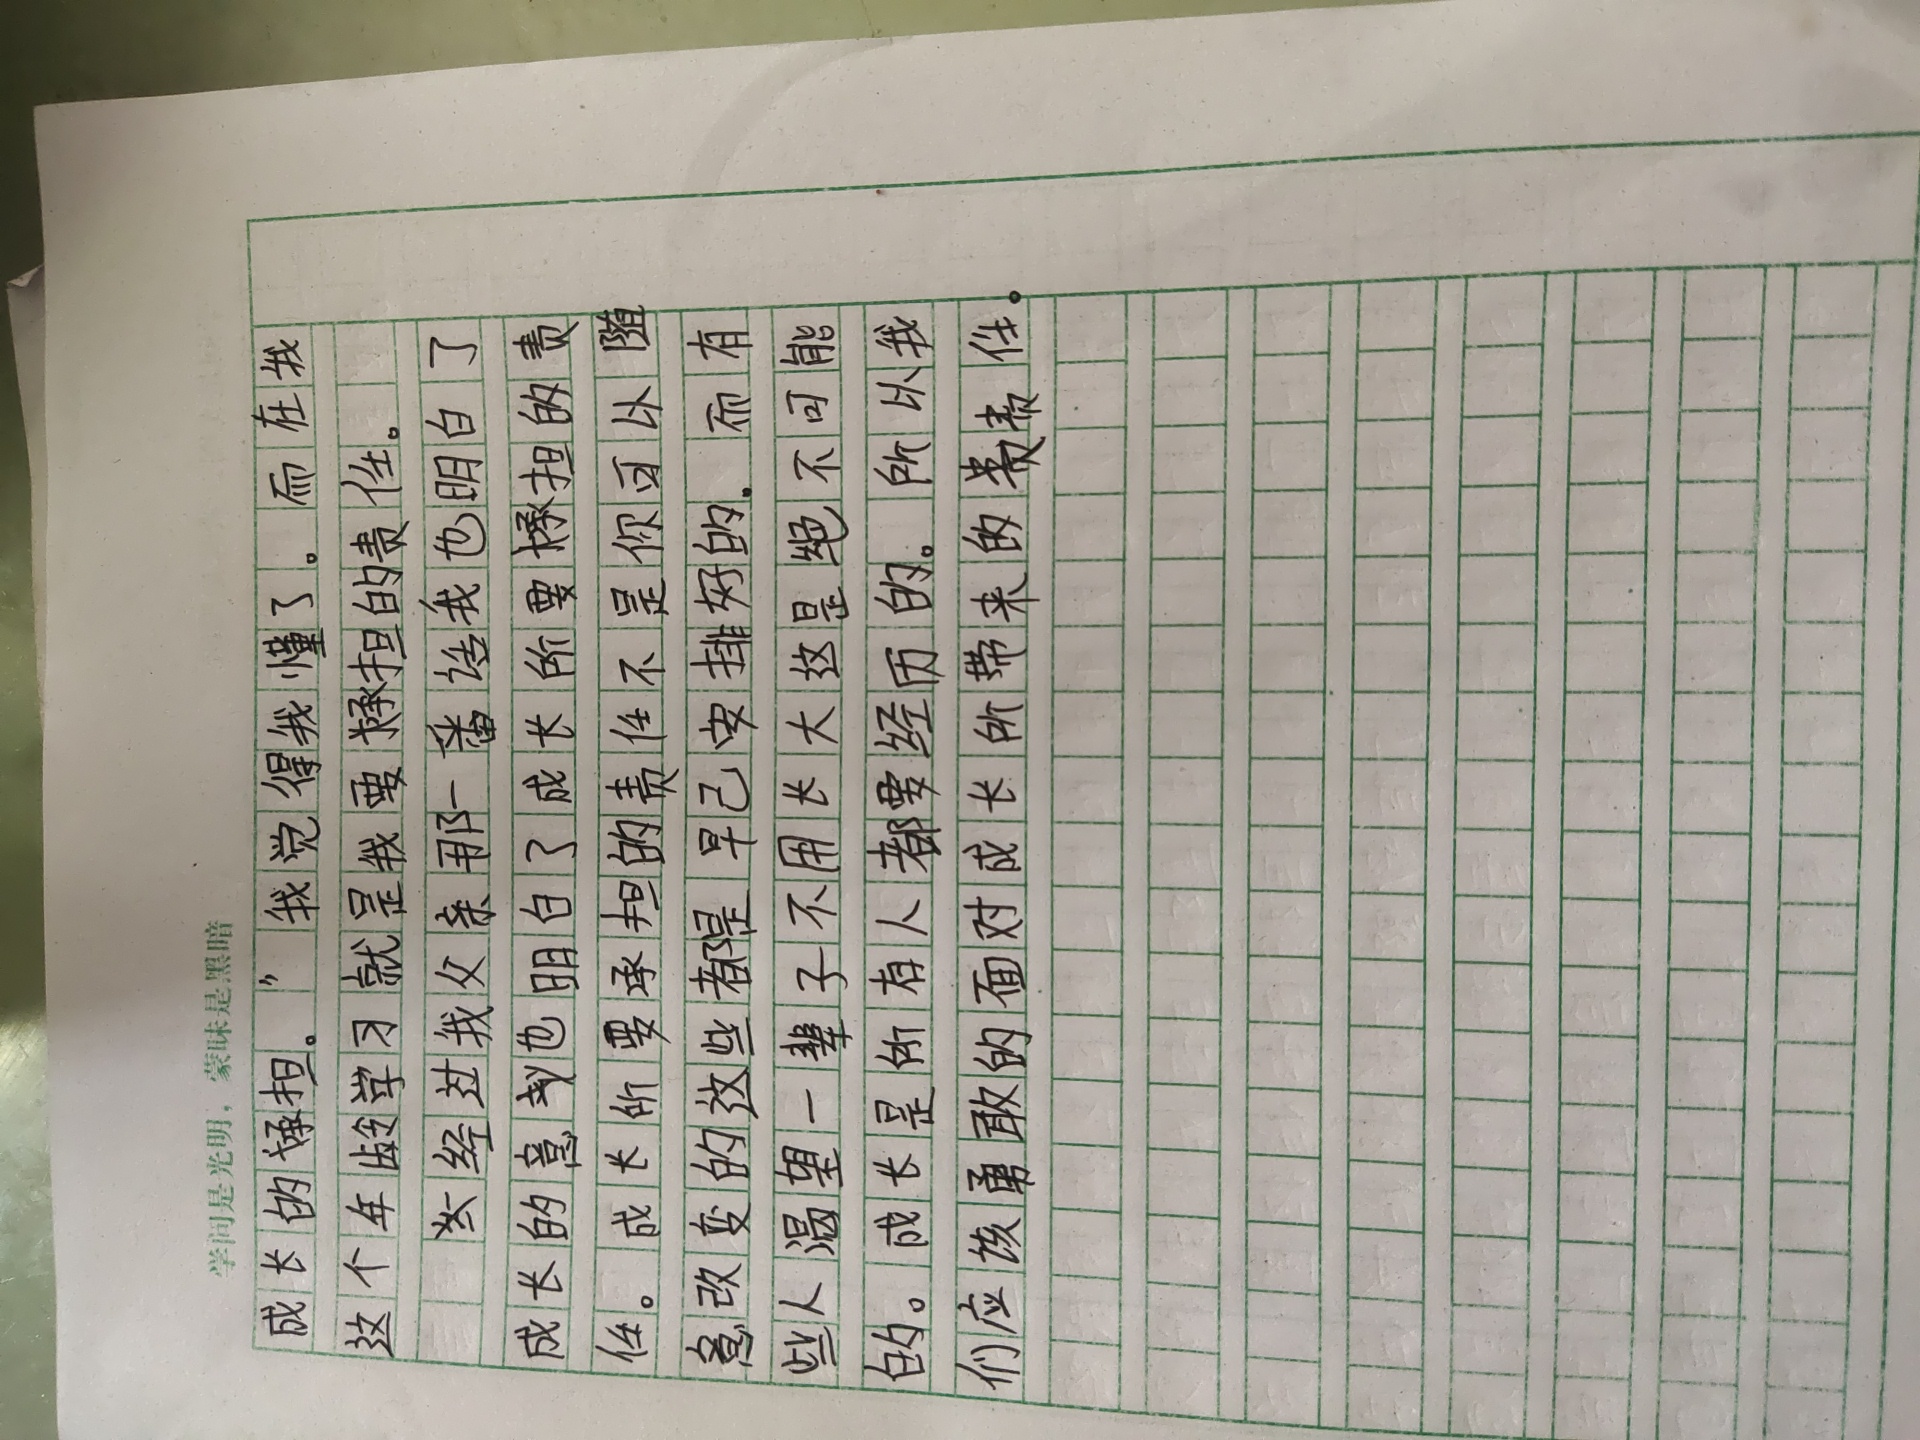 学问是光明，蒙昧是黑暗
成长的承担。”我觉得我懂了。而在我
这个年龄学习就是我要承担的责任。
关经过我父亲那一番话我也明白了
成长的意我也明白了成长所要承担的责
任。成长所要承担的责任不是你可以随
意改变的这些都是早己安排好的.而有
些人渴望一辈子不用长大这是绝不可能
的。成长是所有人都要经历的。所以我
们应该勇敢的面对成长所带来的责任。